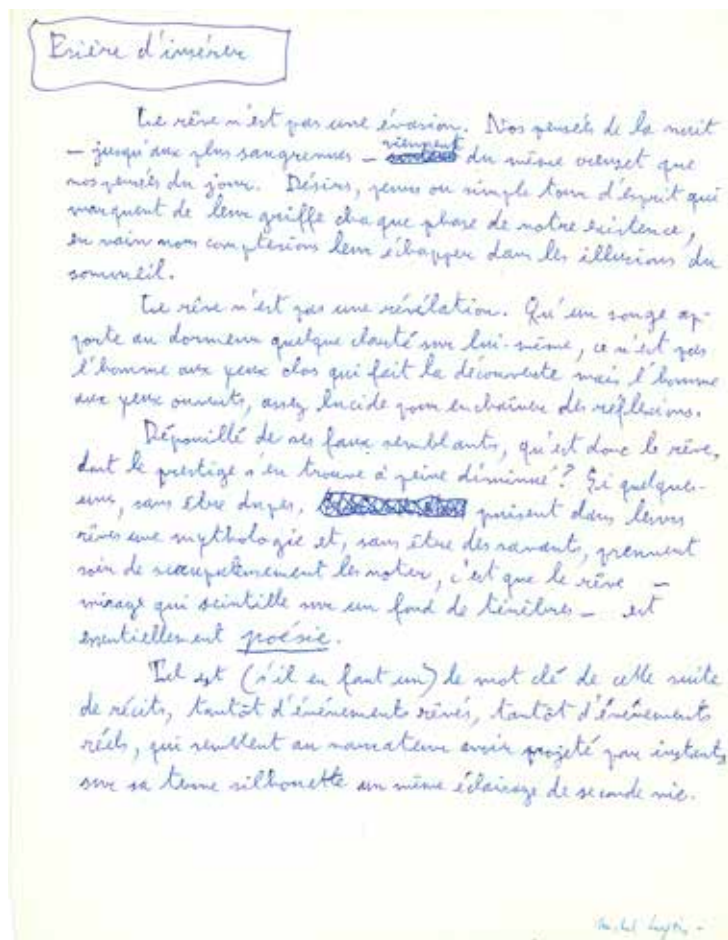 Prière d'insérer
Le rêve n'est pas une évasion. Nos pensées de la nuit
— jusqu'aux plus saugrenues — viennent du même creuset que
nos pensées du jour. Désirs, peurs ou simple tour d'esprit qui
marquent de leur griffe chaque phase de notre existence,
en vain nous comptesions leur échapper dans les illusions du
sommeil.
Le rêve n'est pas une révélation. Qu'un songe ap-
porte au dormeur quelque clarté sur lui-même, ce n'est pas
l'homme aux yeux clos qui fait la découverte mais l'homme
aux yeux ouverts, assez lucide pour enchaîner des réflexions.
Dépouillé de ses faux semblants, qu'est donc le rêve,
dont le prestige s'en trouve à peine diminué? Si quelques-
uns, sans être dupes, puisent dans leurs
rêves une mythologie et, sans être des savants, prennent
soin de scrupuleusement les noter, c'est que le rêve —
mirage qui scintille sur un fond de ténèbres — est
essentiellement poésie.
Tel est (s'il en faut un) le mot clé de cette suite
de récits, tantôt d'événements rêvés, tantôt d'événements
réels, qui semblent au narrateur avoir projeté par instants
sur sa terne silhouette un même éclairage de seconde vie.
Michel